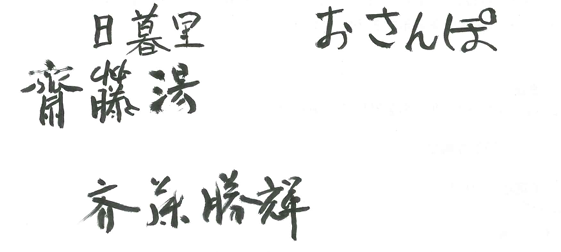 日暮里 おさんぽ
齋藤湯
斉藤勝輝